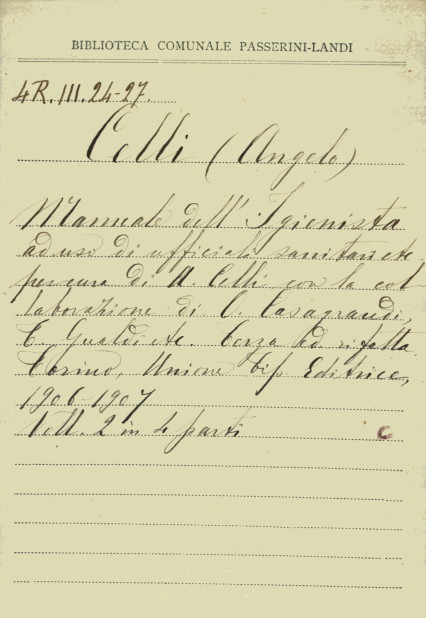 BIBLIOTECA COMUNALE PASSERINI-LANDI
4R.III.24-27.
Celli (Angelo)
Manuale dell'Igienista
ad uso di ufficiali sanitari etc.
per cura di A. Celli con la col-
laborazione di O. Casagrandi,
T. Gualdi etc. Terza ed. rifatta.
Torino, Unione Tip. Editrice,
1906-1907
Voll. 2 in 4 parti